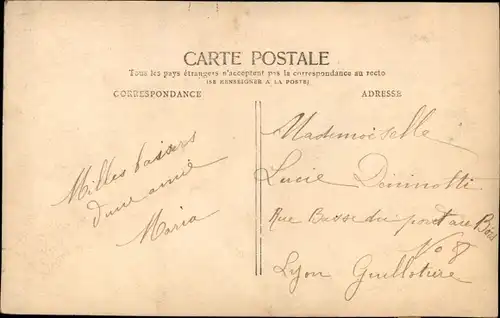 CARTE POSTALE
Tous les pays étrangers n'acceptent pas la correspondance au recto
(SE RENSEIGNER A LA POSTE)
CORRESPONDANCE
ADRESSE
Milles baisers
d'une amie
Maria
Mademoiselle
Lucie
Rue Basse du port au Bois
No 8
Lyon Guillotière